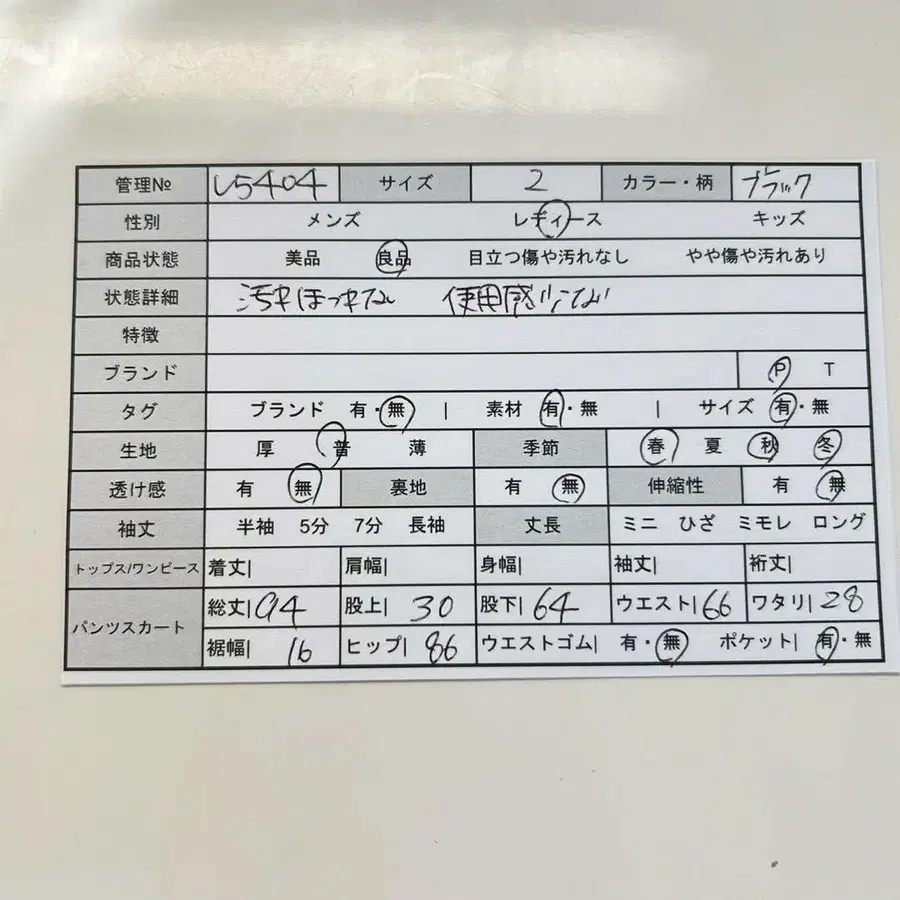 管理№ し5404 サイズ 2 カラー・柄 ブラック
性別 メンズ レディース キッズ
商品状態 美品 良品 目立つ傷や汚れなし やや傷や汚れあり
状態詳細 汚れほつれなし 使用感少ない
特徴
ブランド P T
タグ ブランド 有・無 | 素材 有・無 | サイズ 有・無
生地 厚 普 薄 季節 春 夏 秋 冬
透け感 有 無 裏地 有 無 伸縮性 有 無
袖丈 半袖 5分 7分 長袖 丈長 ミニ ひざ ミモレ ロング
トップス/ワンピース 着丈| 肩幅| 身幅| 袖丈| 裄丈|
パンツスカート 総丈|94 股上|30 股下|64 ウエスト|66 ワタリ|28
裾幅| 16 ヒップ| 86 ウエストゴム| 有・無 ポケット| 有・無